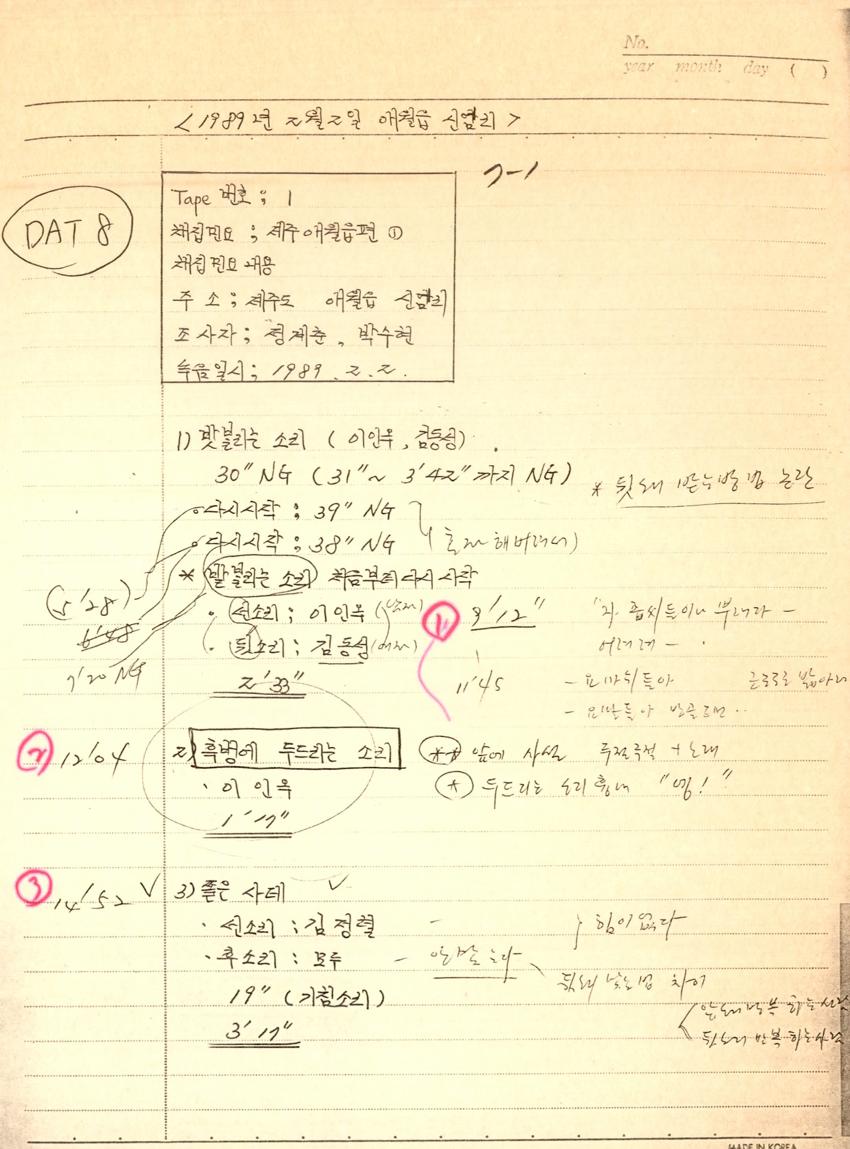 No.
year month day ( )
<1989년 2월 2일 애월읍 신엄리>
7-1
DAT 8
Tape 번호 ; 1
채집민요 ; 제주애월읍편 ①
채집민요 내용
주 소 ; 제주도 애월읍 신엄리
조사자 ; 정제춘, 박수현
녹음일시 ; 1989. 2. 2.
1) 밧볼리는 소리 (이인옥, 김동섬)
30" NG (31"~ 3'42"까지 NG)
* 뒷소리 받는방법 논란
다시시작 ; 39" NG
다시시작 ; 38" NG
혼자 해버려서)
* 밭볼리는 소리 처음부터 다시 시작
(5'28)
6'48
7'20 NG
· 선소리 ; 이인옥 (남자)
· 뒷소리 ; 김동섬 (여자)
2'33"
① 9'12"
11'45
어려려 ―
― 요 마쉬들아
② 12'04
2) 흑벙에 두드리는 소리
** 앞에 사설 + 노래
· 이인옥
* 두드리는 소리 흉내
1'17"
③ 14'52 ✓
3) 졸은 사데 ✓
· 선소리 : 김정렬 ―
힘이 없다
· 후소리 : 모두 ―
뒷소리 받는법 차이
19" (기침소리)
3'17"
뒷소리 반복 하는사람
MADE IN KOREA